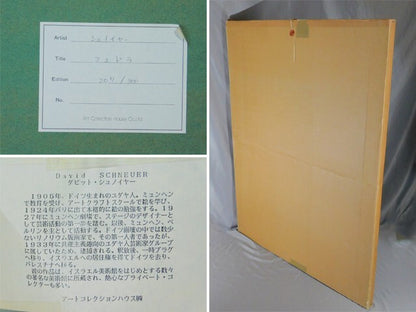 Artist シュノイヤー
Title フェドラ
Edition 207/300
No.
Art Collection House Co.,Ltd.
David SCHNEUER
ダビット・シュノイヤー
1905年、ドイツ生まれのユダヤ人。ミュンヘン
で教育を受け、アートクラフトスクールで絵を学び、
1924年パリに出て本格的に絵の勉強をする。19
27年にミュンヘン劇場で、ステージのデザイナーと
して芸術活動の第一歩を踏む。以後、ミュンヘン、ベ
ルリンを主として活動する。ドイツ画壇の中では数少
ないリノリウム版画家で、その第一人者であったが、
1933年に共産主義傾向のユダヤ人芸術家グループ
に属していたため、逮捕される。釈放後、一時プラグ
へ移り、イスラエルへの居住権を得てドイツを去り、
パレスチナへ移る。
彼の作品は、イスラエル美術館をはじめとする数々
の著名な美術館に所蔵され、熱心なプライベート・コ
レクターも多い。
アートコレクションハウス㈱